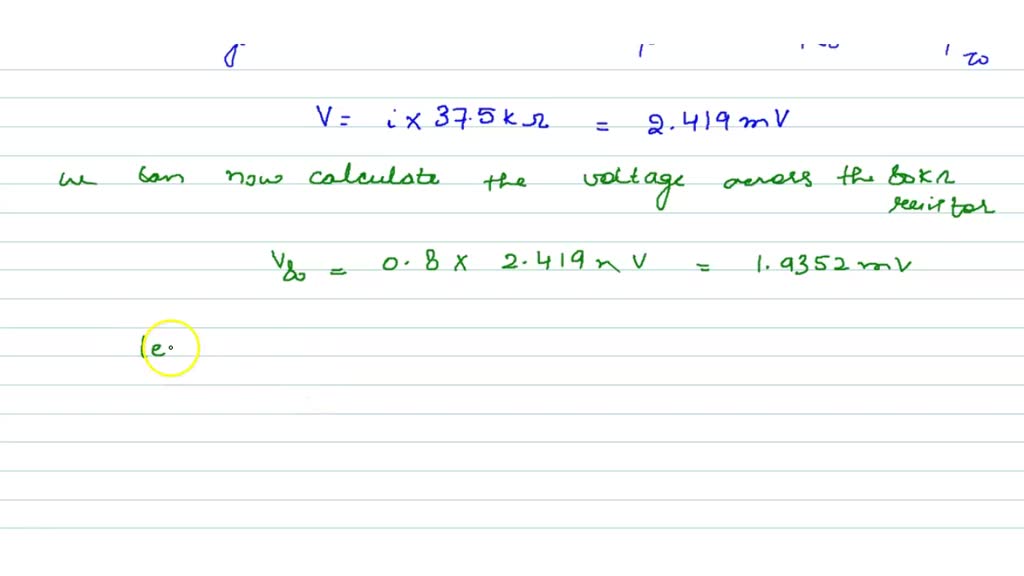 V = i x 37.5 k Ω = 2.419 mV
we can now calculate the voltage across the 80 k Ω
resistor
V80 = 0.8 x 2.419 m V = 1.9352 mV
(e.